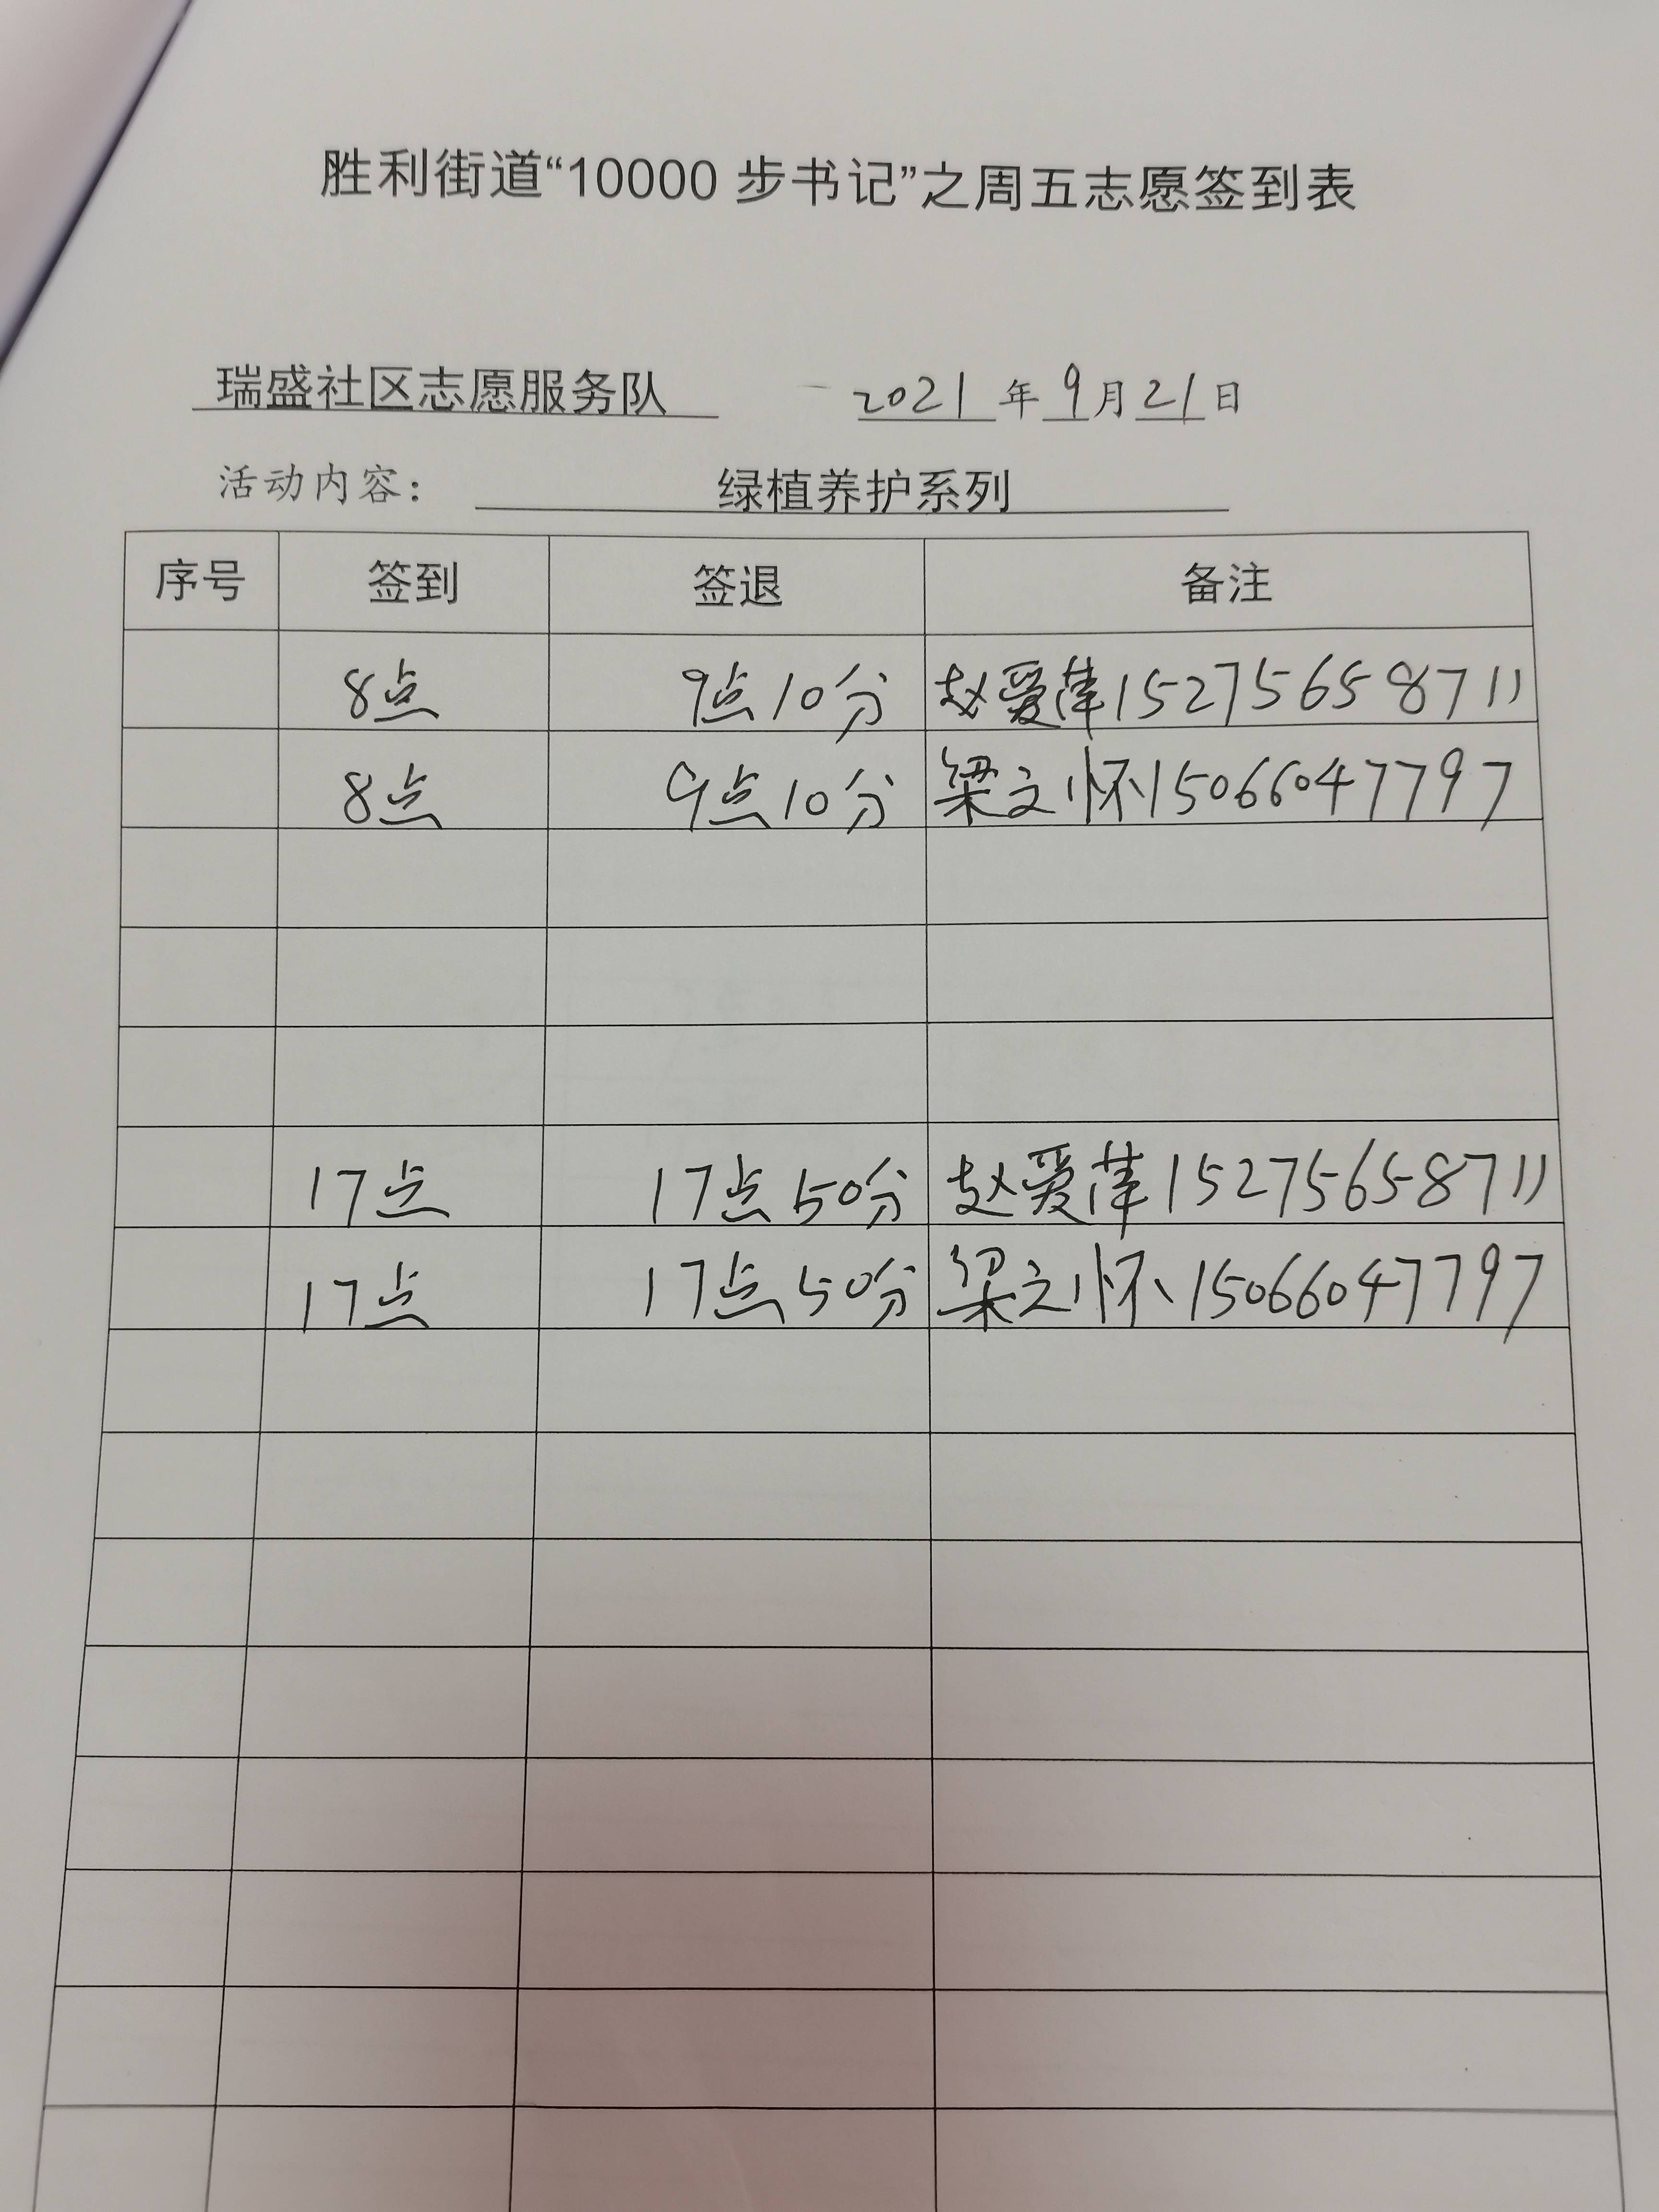 胜利街道“10000 步书记”之周五志愿签到表
瑞盛社区志愿服务队 2021年9月21日
活动内容: 绿植养护系列
序号 签到 签退 备注
8点 9点10分 赵爱萍15275658711
8点 9点10分 梁文怀15066047797
17点 17点50分 赵爱萍15275658711
17点 17点50分 梁文怀15066047797